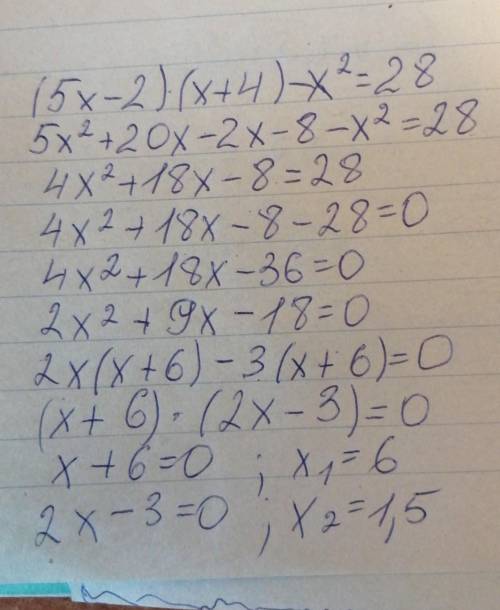 (5x-2)·(x+4)-x²=28
5x²+20x-2x-8-x²=28
4x²+18x-8=28
4x²+18x-8-28=0
4x²+18x-36=0
2x²+9x-18=0
2x(x+6)-3(x+6)=0
(x+6)·(2x-3)=0
x+6=0 ; x₁=6
2x-3=0 ; x₂=1,5